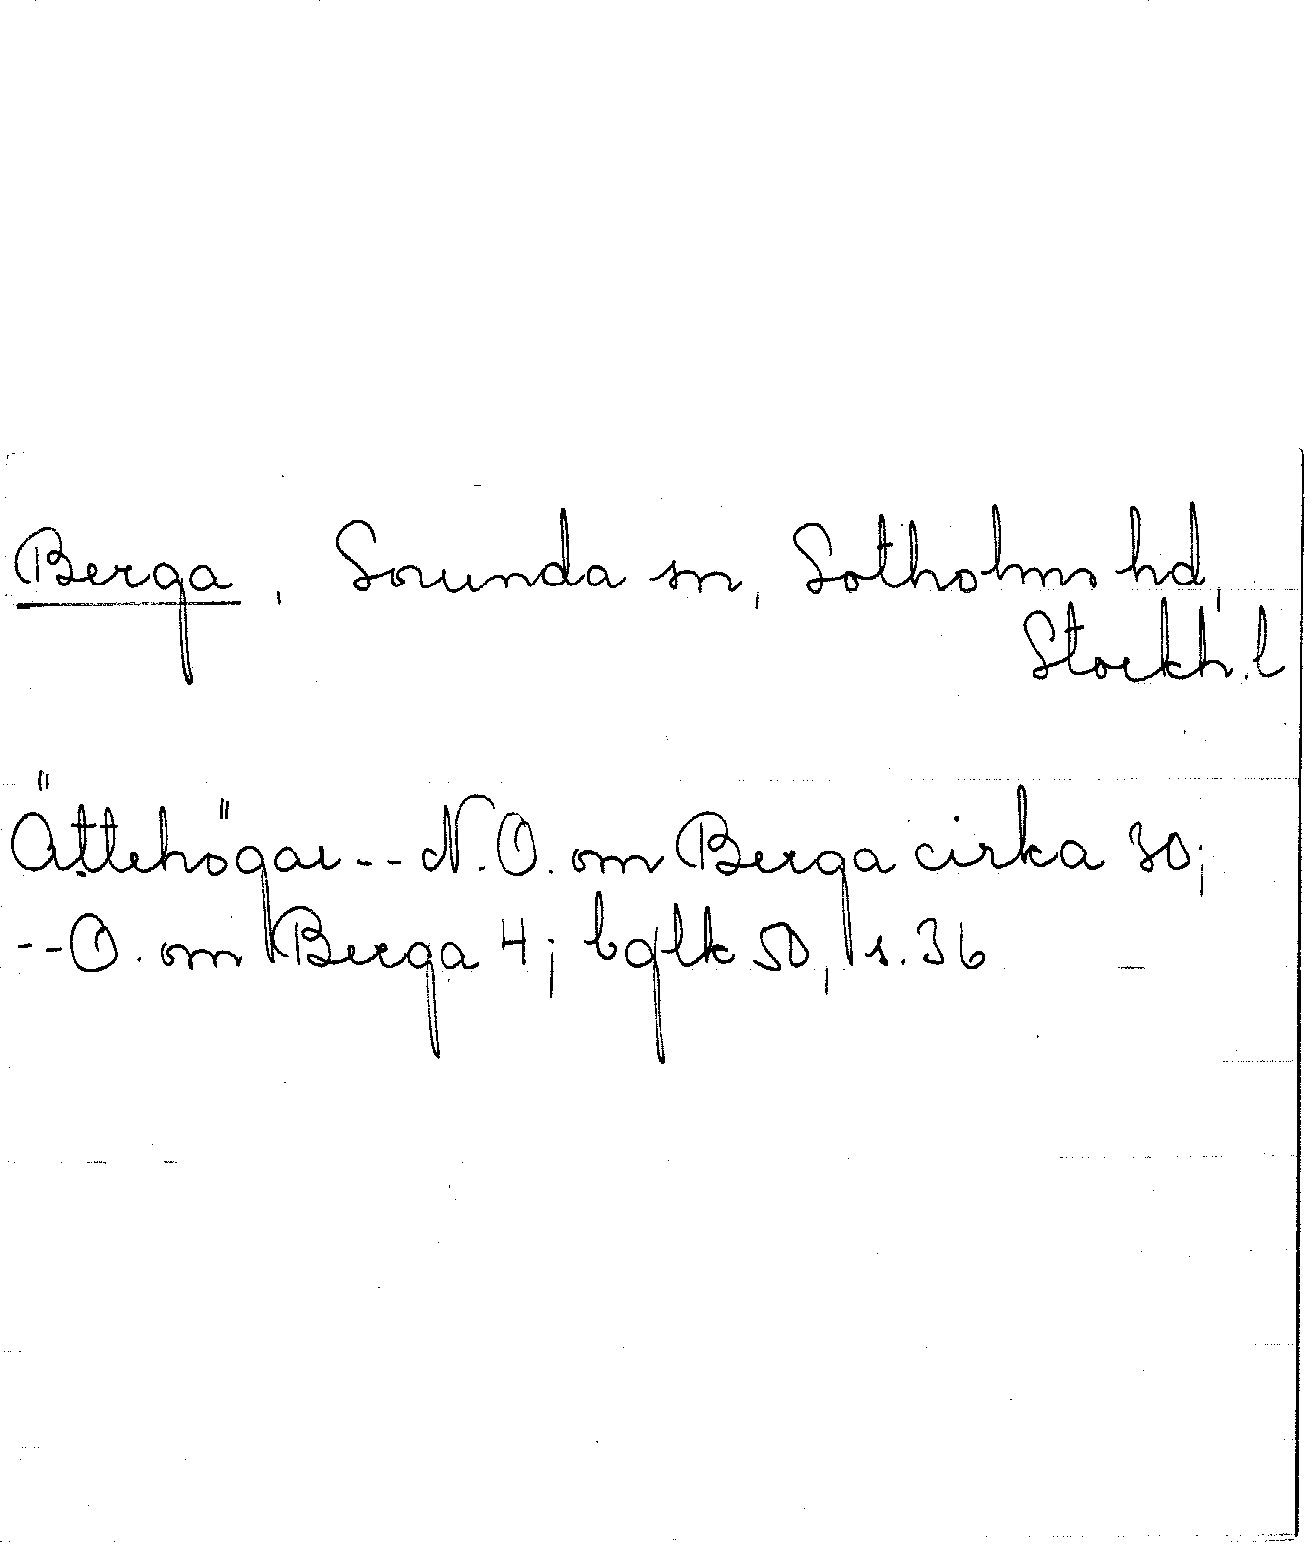 Berga, Sorunda sn, Sotholms hd,
Stockh. l
Ättehögar -- N.O. om Berga cirka 30;
-- O. om Berga 4; bglk 50, s. 36